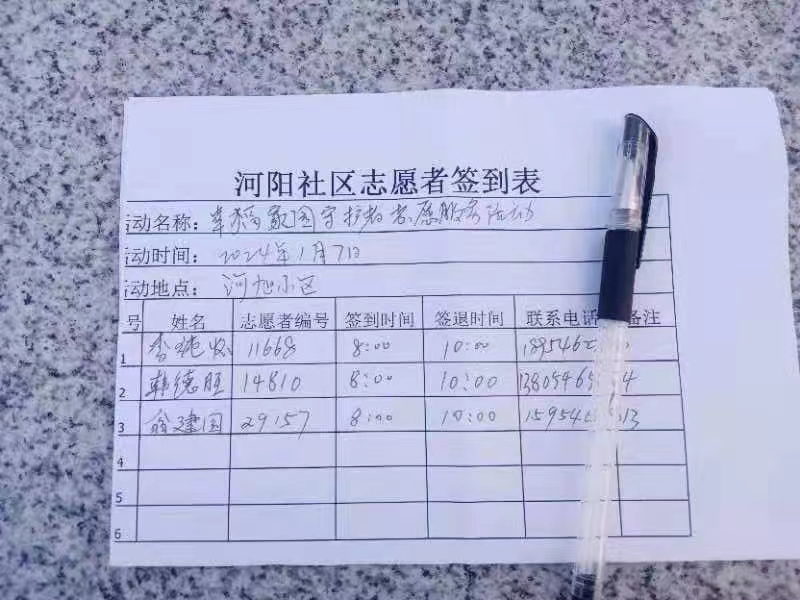 河阳社区志愿者签到表
活动名称：幸福家园守护者志愿服务活动
活动时间：2024年1月7日
活动地点：河旭小区
号 姓名 志愿者编号 签到时间 签退时间 联系电话 备注
1 11668 8:00 10:00
2 韩德胜 14810 8:00 10:00
3 翁建国 29157 8:00 10:00
4
5
6